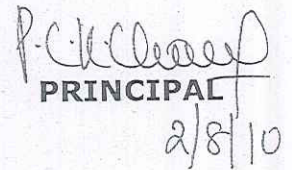 PRINCIPAL
2/8/10